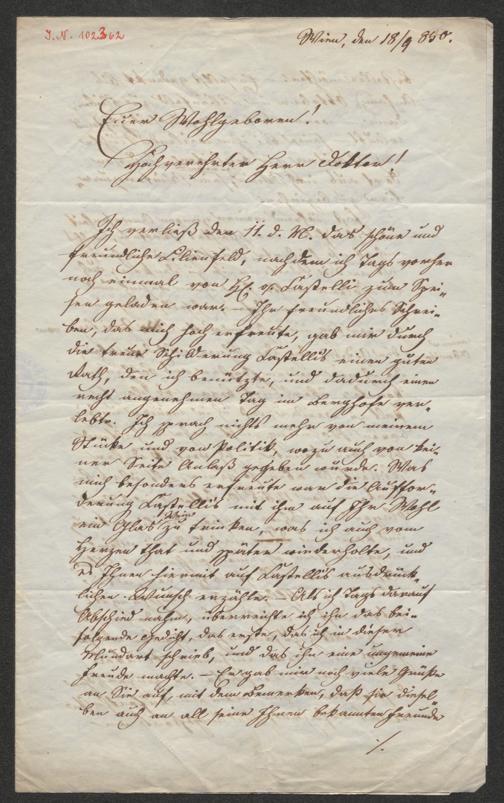 J. N. 102362
Wien, den 18/9 850.
Euer Wohlgeboren!
Hochverehrter Herr Doktor!
Ich verließ den 11. d. M. das schöne und
freundliche Lilienfeld, nachdem ich Tags vorher
noch einmal von H. v. Castelli zum Spei-
sen geladen war. – Ihr freundliches Schrei-
ben, das mich hoch erfreute, gab mir durch
die treue Schilderung Castelli's einen guten
Rath, den ich benützte, und dadurch einen
recht angenehmen Tag im Berghofe ver-
lebte. Ich sprach nichts mehr von meinem
Stücke und von Politik, wozu auch von kei-
ner Seite Anlaß gegeben wurde. Was
mich besonders erfreute war die Auffor-
derung Castelli's mit ihm auf Ihr Wohl
ein Glas Wein zu trinken, was ich auch vom
Herzen that und später wiederholte, und
es Ihnen hiermit auf Castelli's ausdrück-
lichen Wunsch erzähle. Als ich Tags darauf
Abschied nahm, überreichte ich ihm das bei-
folgende Gedicht, das erste, das ich in dieser
Mundart schrieb, und das ihm eine ungemeine
Freude machte. – Er gab mir noch viele Grüße
an Sie auf mit dem Bemerken, daß Sie diesel-
ben auch an all seine Ihnen bekannten Freunde
./.